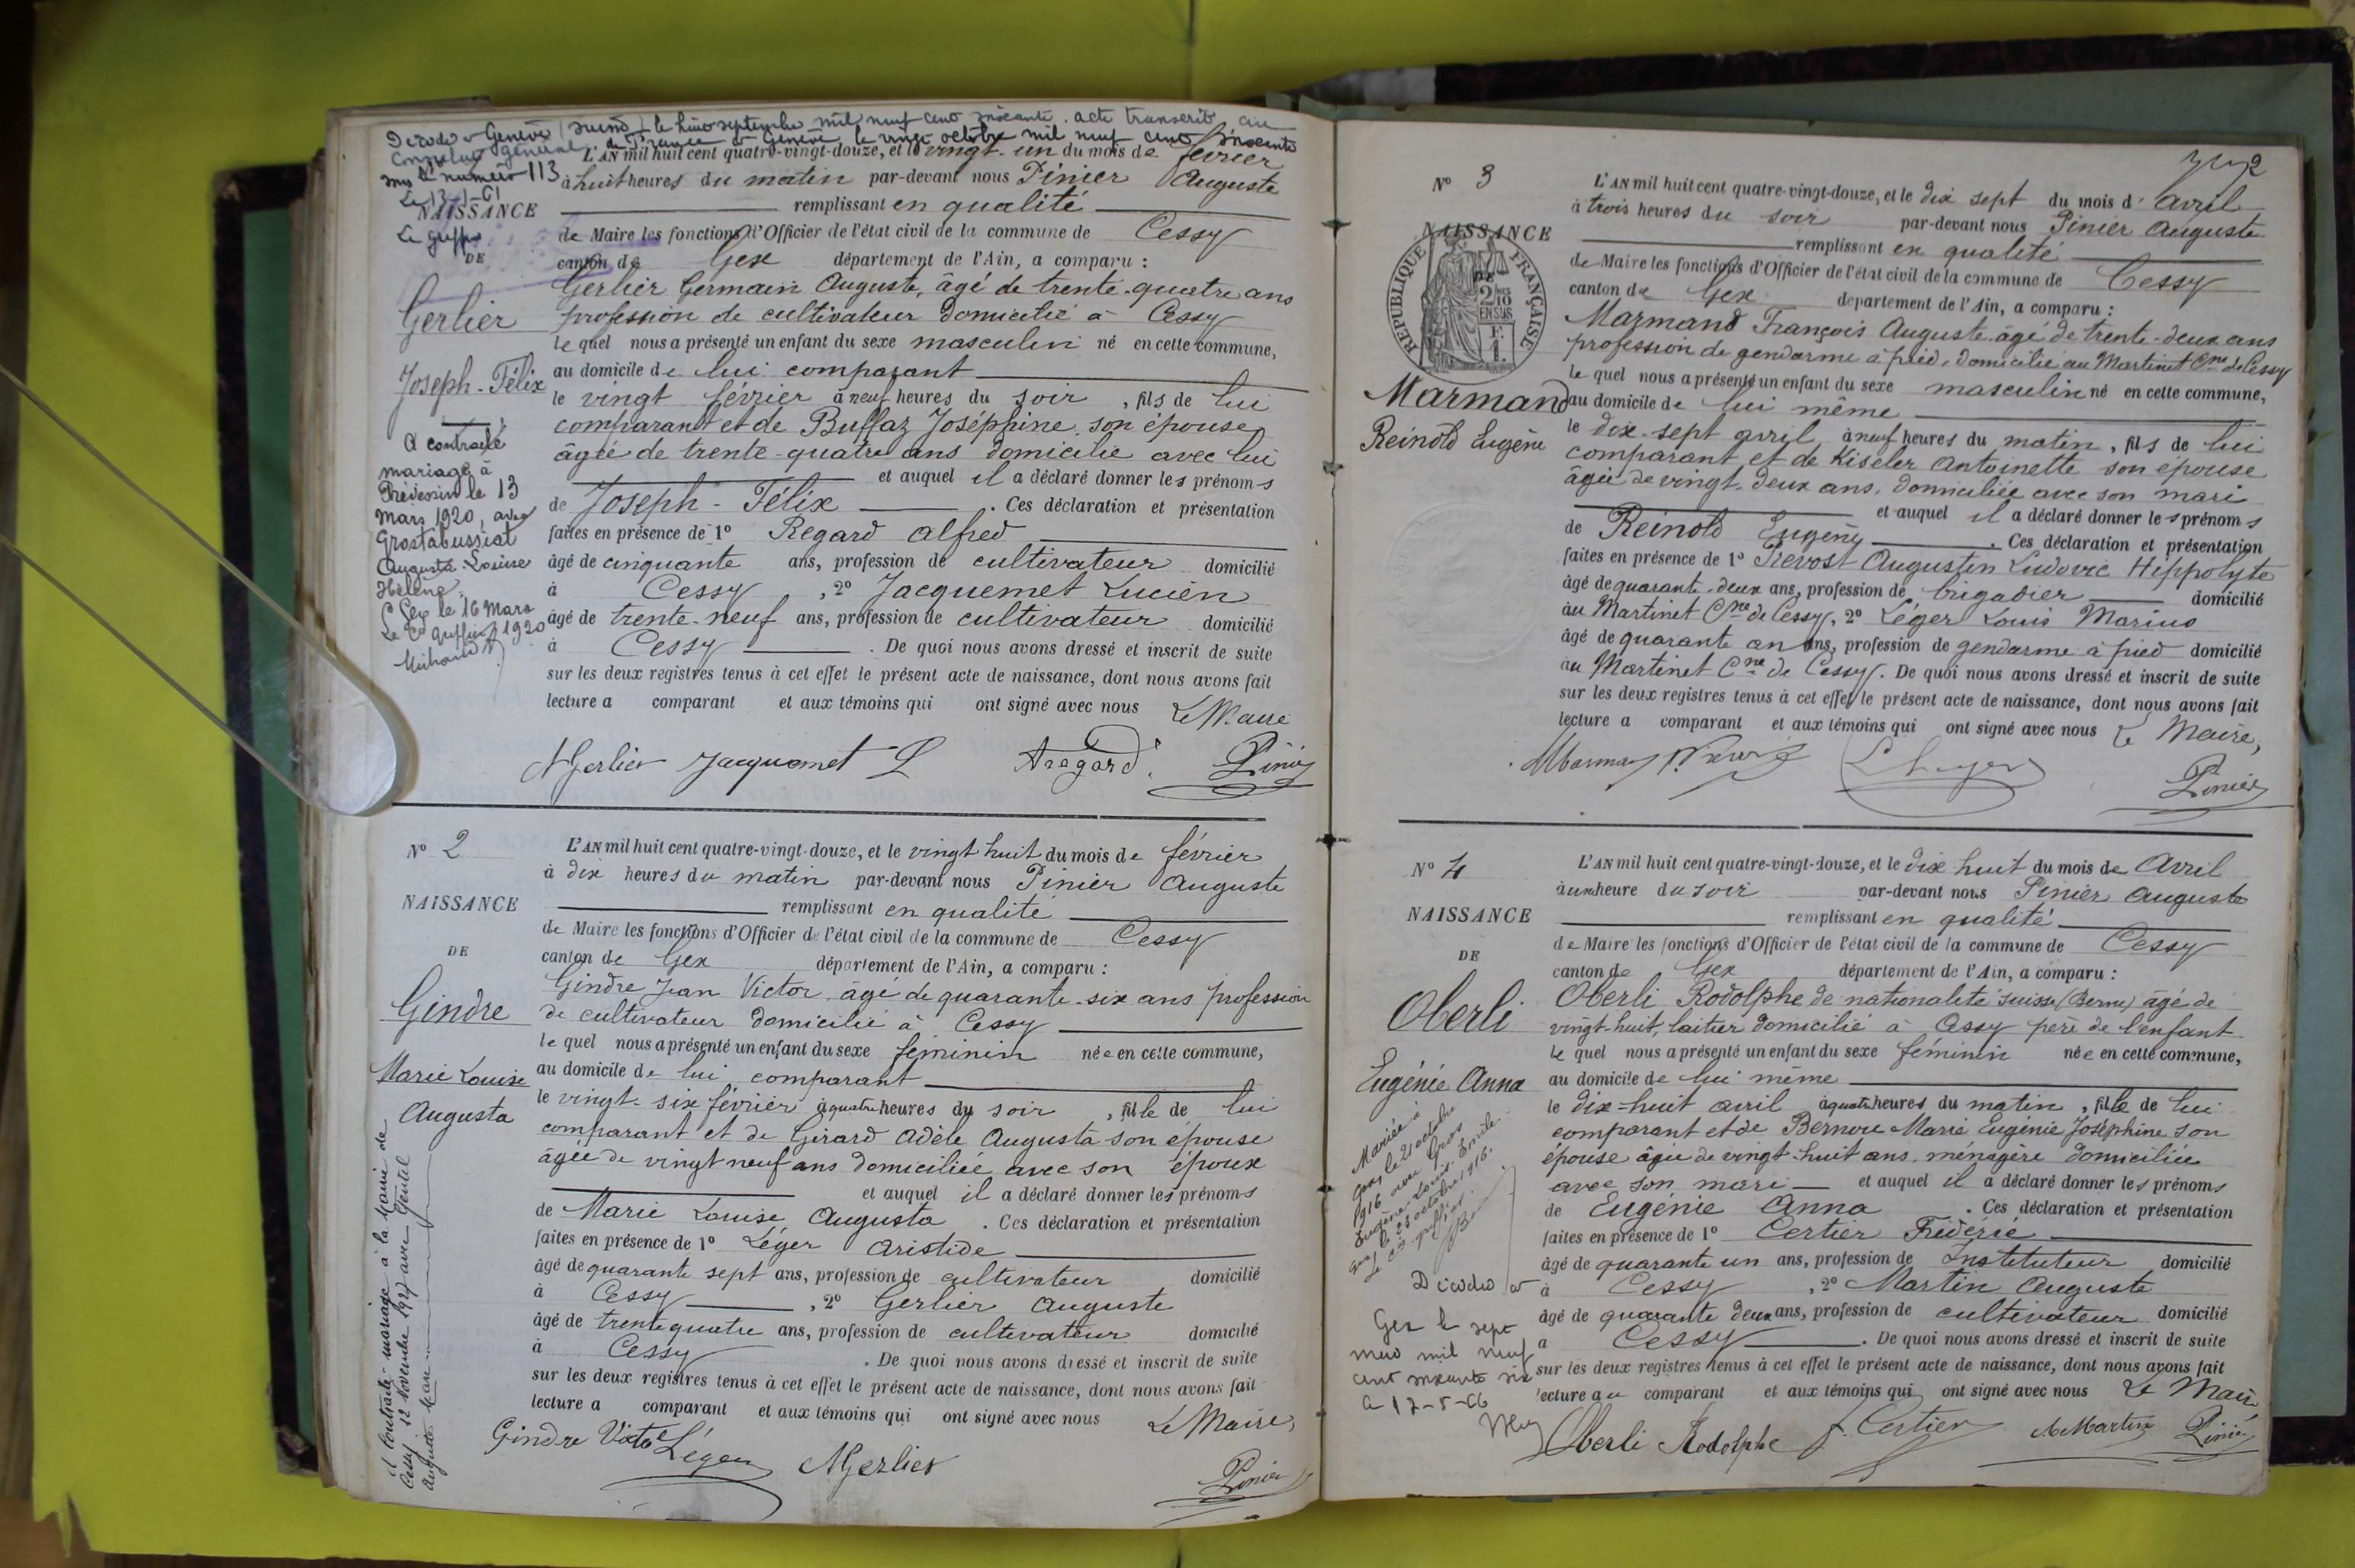 Décédé à Genève (Suisse) le huit septembre mil neuf cent soixante. acte transcrit au
Consulat général de France à Genève le vingt octobre mil neuf cent soixante
sous le numéro 113
Le 13-1-61
Le greffier
L'AN mil huit cent quatre-vingt-douze, et le vingt-un du mois de février
à huit heures du matin par-devant nous Pinier Auguste
remplissant en qualité
de Maire les fonctions d'Officier de l'état civil de la commune de Cessy
canton de Gex département de l'Ain, a comparu :
Gerlier Germain Auguste, âgé de trente-quatre ans
profession de cultivateur domicilié à Cessy
le quel nous a présenté un enfant du sexe masculin né en cette commune,
au domicile de lui comparant
le vingt février à neuf heures du soir, fils de lui
comparant et de Buffaz Joséphine son épouse
âgée de trente-quatre ans domicilié avec lui
et auquel il a déclaré donner les prénoms
de Joseph-Félix. Ces déclaration et présentation
faites en présence de 1º Regard Alfred
âgé de cinquante ans, profession de cultivateur domicilié
à Cessy, 2º Jacquemet Lucien
âgé de trente-neuf ans, profession de cultivateur domicilié
à Cessy. De quoi nous avons dressé et inscrit de suite
sur les deux registres tenus à cet effet le présent acte de naissance, dont nous avons fait
lecture a comparant et aux témoins qui ont signé avec nous Le Maire
A Gerlier Jacquemet L A regard Pinier
NAISSANCE
DE
Gerlier
Joseph-Félix
A contracté
mariage à
Prévessin le 13
Mars 1920, avec
Grostabussiat
Augusta-Louise
Hélène.
Gex le 16 Mars
1920
Le Cis greffier
Nº 2
NAISSANCE
DE
Gindre
Marie Louise
Augusta
a contracté mariage à la Mairie de
Cessy, 12 Novembre 1927 avec Gentil
Auguste Marie
L'AN mil huit cent quatre-vingt-douze, et le vingt huit du mois de février
à dix heures du matin par-devant nous Pinier Auguste
remplissant en qualité
de Maire les fonctions d'Officier de l'état civil de la commune de Cessy
canton de Gex département de l'Ain, a comparu :
Gindre Jean Victor, âgé de quarante-six ans profession
de cultivateur domicilié à Cessy
le quel nous a présenté un enfant du sexe féminin née en cette commune,
au domicile de lui comparant
le vingt-six février à quatre heures du soir, fille de lui
comparant et de Girard Adèle Augusta son épouse
âgée de vingt neuf ans domiciliée avec son époux
et auquel il a déclaré donner les prénoms
de Marie Louise Augusta. Ces déclaration et présentation
faites en présence de 1º Léger Aristide
âgé de quarante sept ans, profession de cultivateur domicilié
à Cessy, 2º Gerlier Auguste
âgé de trente quatre ans, profession de cultivateur domicilié
à Cessy. De quoi nous avons dressé et inscrit de suite
sur les deux registres tenus à cet effet le présent acte de naissance, dont nous avons fait
lecture a comparant et aux témoins qui ont signé avec nous Le Maire,
Gindre Victor Léger A Gerlier Pinier
Nº 3
NAISSANCE
DE
RÉPUBLIQUE FRANÇAISE
2/10
EN SUS
Marmand
Reinold Eugène
L'AN mil huit cent quatre-vingt-douze, et le dix sept du mois d'Avril
à trois heures du soir par-devant nous Pinier Auguste
remplissant en qualité
de Maire les fonctions d'Officier de l'état civil de la commune de Cessy
canton de Gex département de l'Ain, a comparu :
Marmand François Auguste âgé de trente-deux ans
profession de gendarme à pied, domicilié au Martinet Cne de Cessy
le quel nous a présenté un enfant du sexe masculin né en cette commune,
au domicile de lui même
le dix-sept avril à neuf heures du matin, fils de lui
comparant et de Kiseler Antoinette son épouse
âgée de vingt-deux ans, domiciliée avec son mari
et auquel il a déclaré donner les prénoms
de Reinold Eugèny. Ces déclaration et présentation
faites en présence de 1º Prévost Augustin Ludovic Hippolyte
âgé de quarante-deux ans, profession de brigadier domicilié
au Martinet Cne de Cessy, 2º Léger Louis Marius
âgé de quarante an ans, profession de gendarme à pied domicilié
au Martinet Cne de Cessy. De quoi nous avons dressé et inscrit de suite
sur les deux registres tenus à cet effet le présent acte de naissance, dont nous avons fait
lecture a comparant et aux témoins qui ont signé avec nous Le Maire,
Pinier
Nº 4
NAISSANCE
DE
Oberli
Eugénie Anna
Mariée à
Gex, le 21 octobre
1916 avec Gros
Eugène-Louis-Emile.
Gex le 23 octobre 1916.
Le Cis greffier
Décédée à
Gex le sept
mai mil neuf
cent soixante six
le 17-5-66
L'AN mil huit cent quatre-vingt-douze, et le dix huit du mois de Avril
à une heure du soir par-devant nous Pinier Auguste
remplissant en qualité
de Maire les fonctions d'Officier de l'état civil de la commune de Cessy
canton de Gex département de l'Ain, a comparu :
Oberli Rodolphe de nationalité suisse (Berne) âgé de
vingt-huit, laitier domicilié à Cessy père de l'enfant
le quel nous a présenté un enfant du sexe féminin née en cette commune,
au domicile de lui même
le dix-huit avril à quatre heures du matin, fille de lui
comparant et de Bernou Marie Eugénie Joséphine son
épouse âgée de vingt-huit ans, ménagère domiciliée
avec son mari et auquel il a déclaré donner les prénoms
de Eugénie Anna. Ces déclaration et présentation
faites en présence de 1º Certier Frédéric
âgé de quarante un ans, profession de Instituteur domicilié
à Cessy, 2º Martin Auguste
âgé de quarante deux ans, profession de cultivateur domicilié
à Cessy. De quoi nous avons dressé et inscrit de suite
sur les deux registres tenus à cet effet le présent acte de naissance, dont nous avons fait
lecture au comparant et aux témoins qui ont signé avec nous Le Maire
Oberli Rodolphe F. Certier A Martin Pinier